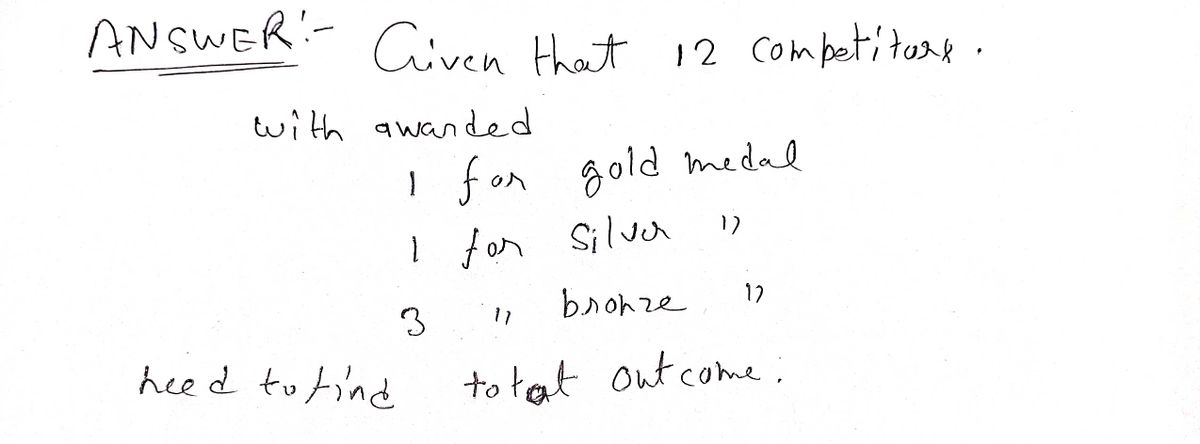 ANSWER:- Given that 12 competitors.
with awarded
1 for gold medal
1 for silver "
3 " bronze "
need to find total outcome.